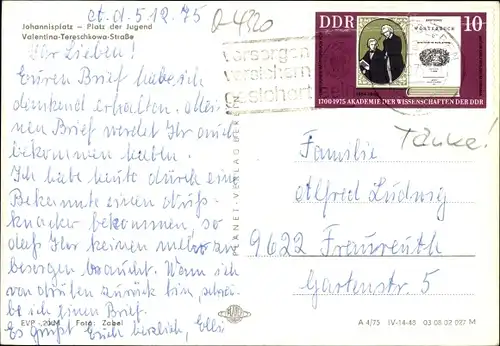 Johannisplatz – Platz der Jugend
Valentina-Tereschkowa-Straße
d. 5.12.75
Ihr Lieben!
Euren Brief habe ich
dankend erhalten. Mei-
nen Brief werdet Ihr auch
bekommen haben.
Ich habe heute durch eine
Bekannte einen Nuß-
knacker bekommen, so
daß Ihr keinen mehr zu
besorgen braucht. Wenn ich
von drüben zurück bin, schrei-
be ich einen Brief.
Es grüßt Euch herzlich, Elli
EVP -,20 M Foto: Zobel
PLANET-VERLAG BERLIN
vorsorgen
versichern
gesichert sein
DDR 10
WÖRTERBUCH
1700-1975 AKADEMIE DER WISSENSCHAFTEN DER DDR
Familie
Alfred Ludwig
9622 Fraureuth
Gartenstr. 5
A 4/75 IV-14-48 03 08 02 027 M